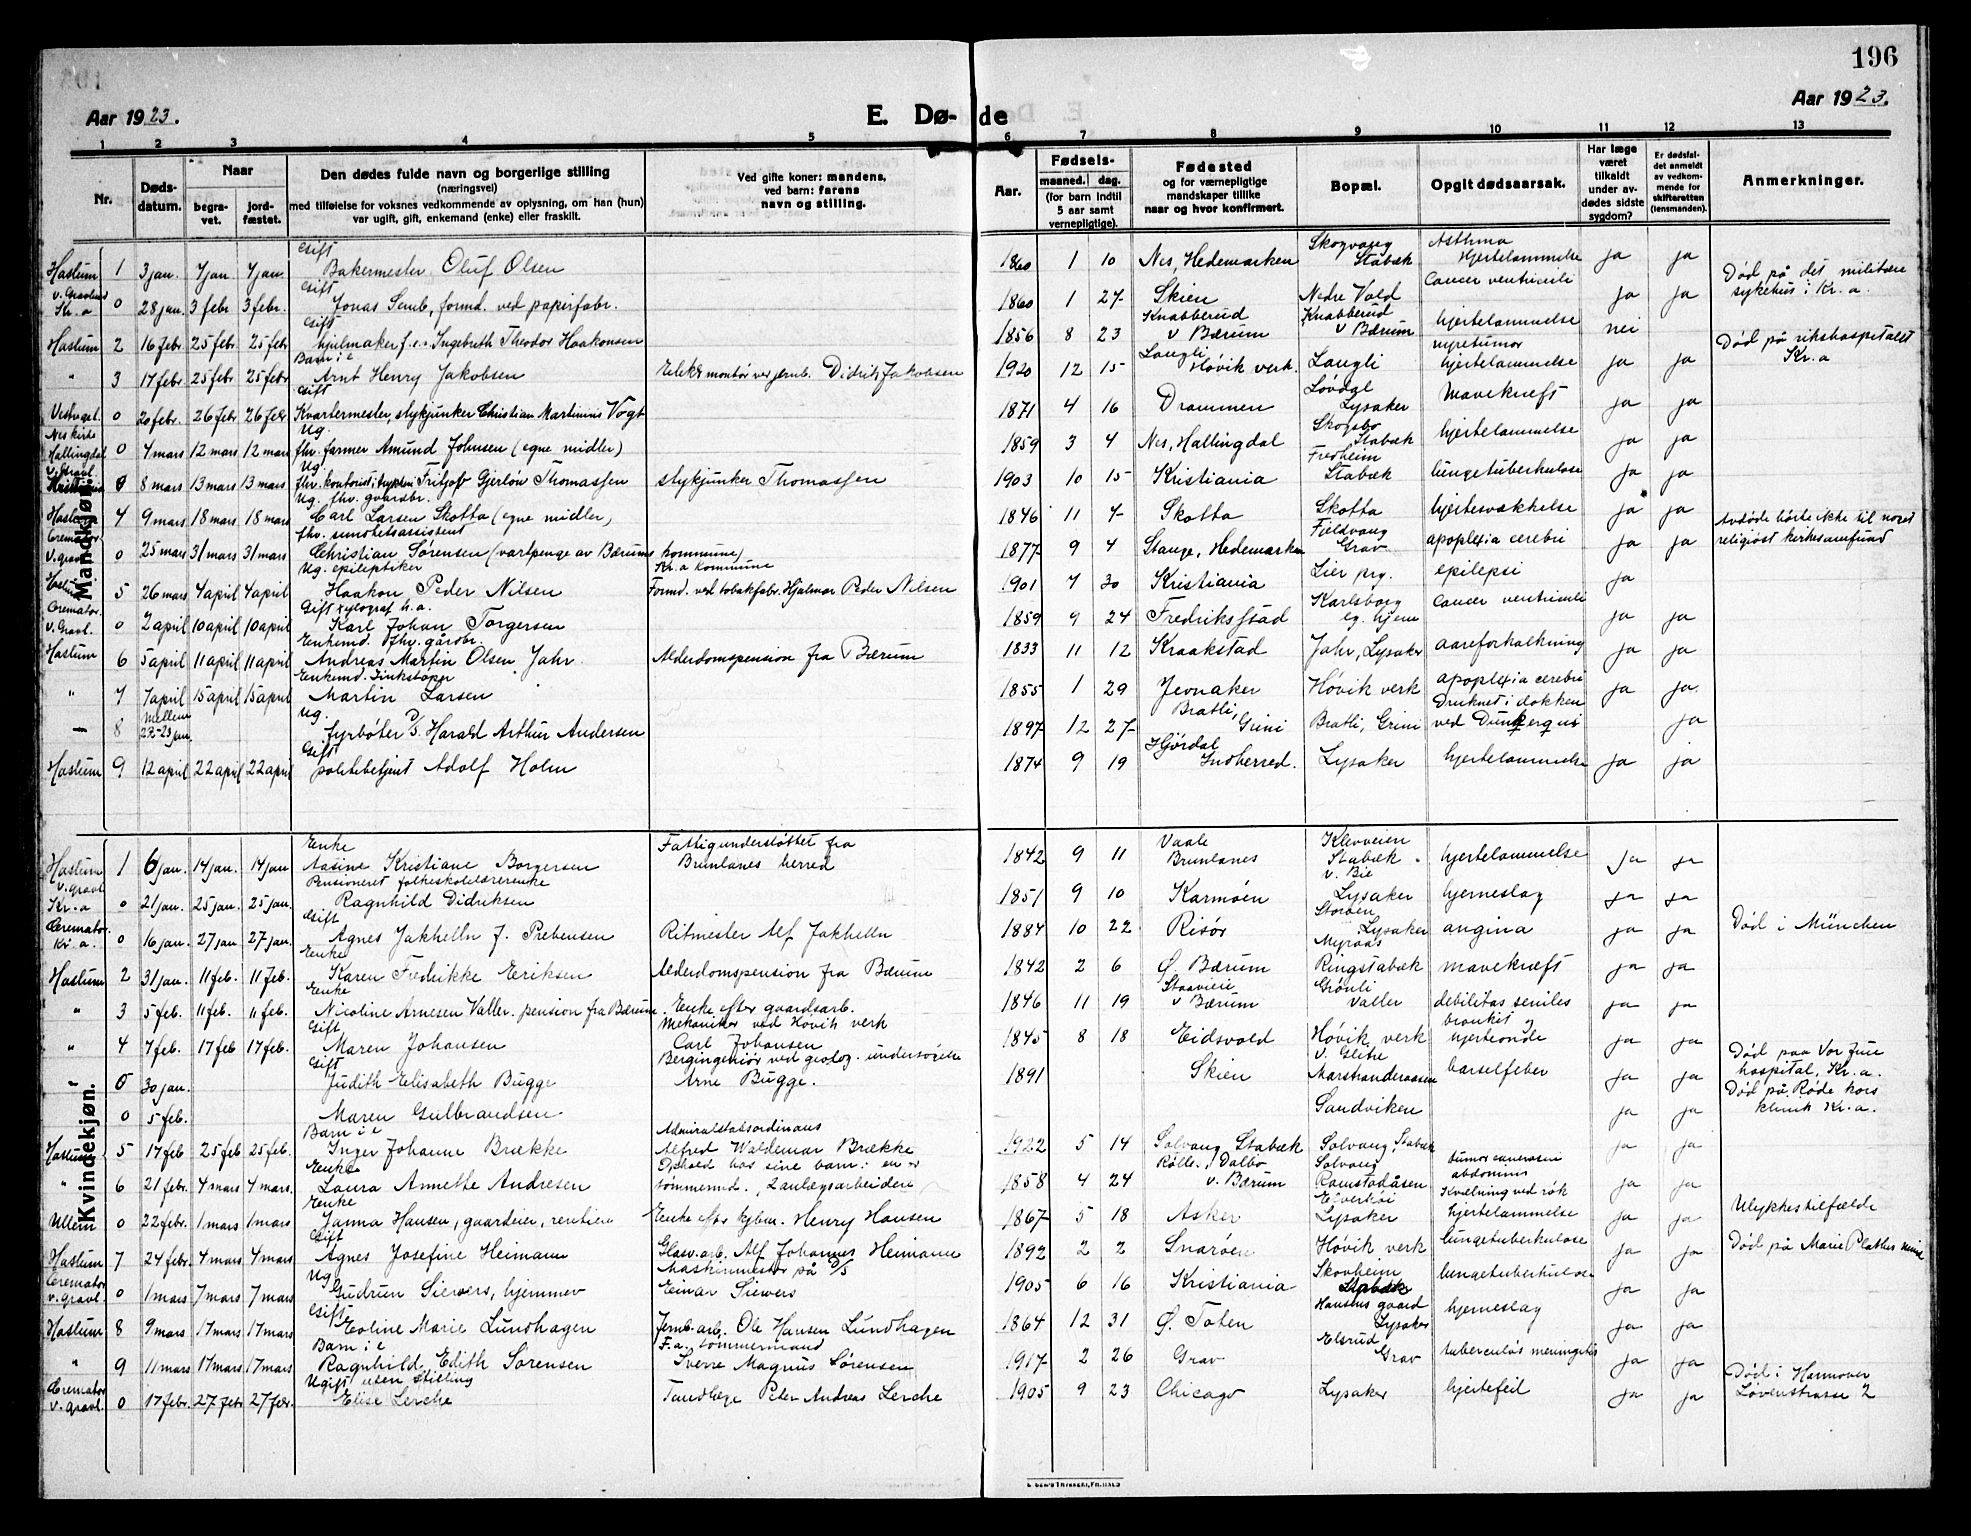 196
Aar 1923.
E. Dø-de
Aar 1923.
1 2 3 4 5 6 7 8 9 10 11 12 13
Nr.
Døds-datum.
Naar
begra-vet.
jord-fæstet.
Den dødes fulde navn og borgerlige stilling
(næringsvei)
med tilføielse for voksnes vedkommende av oplysning, om han (hun)
var ugift, gift, enkemand (enke) eller fraskilt.
Ved gifte koner: mandens,
ved barn: farens
navn og stilling.
Aar.
Fødsels-
maaned. dag.
(for barn indtil
5 aar samt
vernepligtige).
Fødested
og for værnepligtige
mandskaper tillike
naar og hvor konfirmert.
Bopæl.
Opgit dødsaarsak.
Har læge
været
tilkaldt
under av-
dødes sidste
sygdom?
Er dødsfal-
det anmeldt
av vedkom-
mende for
skifteretten
(lensmanden).
Anmerkninger.
Mandkjøn.
Haslum 1 3 jan. 7 jan 7 jan. Gift Bakermester Oluf Olsen 1860 1 10 Nes, Hedemarken Skogvang Stabæk Asthma Hjertelammelse ja ja
v. Gravlund Kr.a 0 28 jan. 3 febr 3 febr. Gift Jonas Semb, formd. ved papirfabr. 1860 1 27 Skien Nedre Vold Cancer ventriculi ja ja Død på det militære sykehus i Kr.a.
Haslum 2 16 febr. 25 febr 25 febr Gift hjulmaker f.v. Ingebreth Theodor Haakonsen 1856 8 23 Knabberud v Bærum Knabberud v Bærum hjertelammelse nei
" 3 17 febr. 25 febr. 25 febr Barn i e Arnt Henry Jakobsen Elektromontør ver jernb. Didrik Jakobsen 1920 12 15 Langli Høvik verk. Langli nyretumor hjertelammelse ja ja Død på rikshospitalet Kr.a
0 20 febr. 26 febr 26 febr Gift Kvartermester, stykjunker Christian Martinius Vogt 1871 4 16 Drammen Løvdal Lysaker Mavekræft ja ja
Nes kirke Hallingdal 0 4 mars 12 mars 12 mars Ug. fhv. farmer Amund Johnsen (egne midler) 1859 3 4 Nes, Hallingdal Skogsbo Stabæk hjertelammelse ja ja
v. Gravl. 0 8 mars 13 mars 13 mars Ug fhv. kontorist Fritjof Gjerløv Thomassen stykjunker Thomassen 1903 10 15 Kristiania Fredheim Stabæk lungetuberkulose ja ja
Haslum 4 9 mars 18 mars 18 mars Ug. fhv. gaardbr. Carl Larsen Skotta (egne midler) 1846 11 7 Skotta Skotta hjertesvækkelse ja ja
Cremator. v. gravl 0 25 mars 31 mars 31 mars fhv. sundhetsassistent Christian Sørensen (vartpenge av Bærums kommune) 1877 9 4 Stange, Hedemarken Fjeldvang Grav apoplexia cerebri ja ja Avdøde hørte ikke til noget religiøst kirkesamfund
Haslum 5 26 mars 4 april 4 april Ug. epileptiker Haakon Peder Nilsen Kr.a kommune Formd. ved tobakfabr. Hjalmar Peder Nilsen 1901 7 30 Kristiania Lier prg. epilepsi ja
Cremator. v. Gravl. 0 2 april 10 april 10 april Gift xylograf h.a. Karl Johan Torgersen 1859 9 24 Fredriksstad Karlsborg eg. hjem Cancer ventriculi ja ja
Haslum 6 5 april 11 april 11 april Enkemd. fhv. gårdbr. Andreas Martin Olsen Jahr. Alderdomspension fra Bærum 1833 11 12 Kraakstad Jahr, Lysaker aareforkalkning ja ja
" 7 7 april 15 april 15 april Enkemd. Zinkstøper Martin Larsen 1855 1 29 Jevnaker Høvik verk apoplexia cerebri ja ja.
" 8 Mellem 22-23 jan. Ug. fyrbøter D/S Harald Arthur Andersen 1897 12 27 Bratli, Grini Bratli, Grini Druknet i dokken ved Dunkerque ja
Haslum 9 12 april 22 april 22 april Gift politibetjent Adolf Holm 1874 9 19 Hjørdal Indherred. Lysaker hjertelammelse ja ja
Kvindekjøn.
Haslum 1 6 jan. 14 jan. 14 jan Enke Aasine Kristiane Borgersen Fattigunderstøttet fra Brunlanes herred 1842 9 11 Vaale Brunlanes Kleivveien Stabæk hjertelammelse ja ja
v. gravl Kr.a 0 21 jan. 25 jan. 25 jan. Pensioneret folkeskolelærerinke Ragnhild Didriksen 1851 9 10 Karmøen v. Bie Lysaker hjerneslag ja ja
Cremator. Kr.a. 0 16 jan. 27 jan. 27 jan. Gift Agnes Jakhelln f. Prebensen Ritmester Alf Jakhelln 1884 10 22 Risør Storøen Lysaker angina ja ja Død i München
Haslum 2 31 jan. 11 feb. 11 feb. Enke Karen Fredrikke Eriksen Alderdomspension fra Bærum 1842 2 6 Ø. Bærum Myraas Ringstabæk mavekræft ja ja
" 3 5 feb. 11 feb. 11 feb. Enke Nicoline Arnesen Valler. pension fra Bærum. Enke efter gaardsarb. 1846 11 19 v Bærum Grønli Valler debilitas seniles ja ja
" 4 7 feb. 17 feb 17 feb. Gift Maren Johansen Mekaniker ved Høvik verk Carl Johansen 1845 8 18 Eidsvold Høvik verk bronkit og hjerteonde ja ja
" 0 30 jan. Gift Judith Elisabeth Bugge Bergingeniør ved geolog. undersøgelse Arne Bugge. 1891 Skien v. Glitre Marstranderaasen barselfeber ja ja Død paa Vor Frue hospital, Kr.a.
0 5 feb. Maren Gulbrandsen Sandviken ja ja Død på Røde kors klinik Kr.a.
Haslum 5 17 feb 25 feb 25 feb. Barn i e Inger Johanne Brække Admiralstabsordinans Alfred Waldemar Brække 1922 5 14 Solvang Stabæk Solvang, Stabæk ja ja
" 6 21 febr. 4 mars 4 mars. Enke Laura Annette Andresen Ophold hos sine barn: en er tømmermd., 2 anlægsarbeidere 1858 4 24 Dalbo v. Bærum Solvang Ramstadåsen tumor abdominis ja ja
Ullern 0 22 febr. 1 mars 1 mars Enke Janna Hansen, gaardeier, rentiere Enke efter kjbm. Henry Hansen 1867 5 18 Asker Lysaker Kvælning ved røk hjertelammelse ja ja Ulykkestilfælde
Haslum 7 24 febr. 4 mars 4 mars. Gift Agnes Josefine Heimann Glasv.arb. Alf Johannes Heimann 1892 2 2 Snarøen Høvik verk lungetuberkulose ja ja Død på Marie Plathes minde
Cremator v. gravl. 0 1 mars 7 mars 7 mars Ug Gudrun Siewers, hjemmev Maskinmester på D/S Einar Siewers 1905 6 16 Kristiania Skovheim Stabæk lungetuberkulose ja ja
Haslum 8 9 mars 17 mars 17 mars Gift Eoline Marie Lundhagen Jernb.arb. Ole Hansen Lundhagen 1864 12 31 Ø. Toten gaard Lysaker hjerneslag ja ja
" 9 11 mars 17 mars 17 mars Barn i e Ragnhild Edith Sørensen F.a. tømmermand Iverre Magnus Sørensen 1917 2 26 Grav Elsrud Grav tuberculøs meningitis ja ja
Cremator v. gravl. 0 17 febr. 27 febr 27 febr. Ugift uten stilling Elise Lerche Tandlæge Peter Andreas Lerche 1905 9 23 Chicago Lysaker hjertefeil ja ja Død i Hannover Løvenstrasse 2